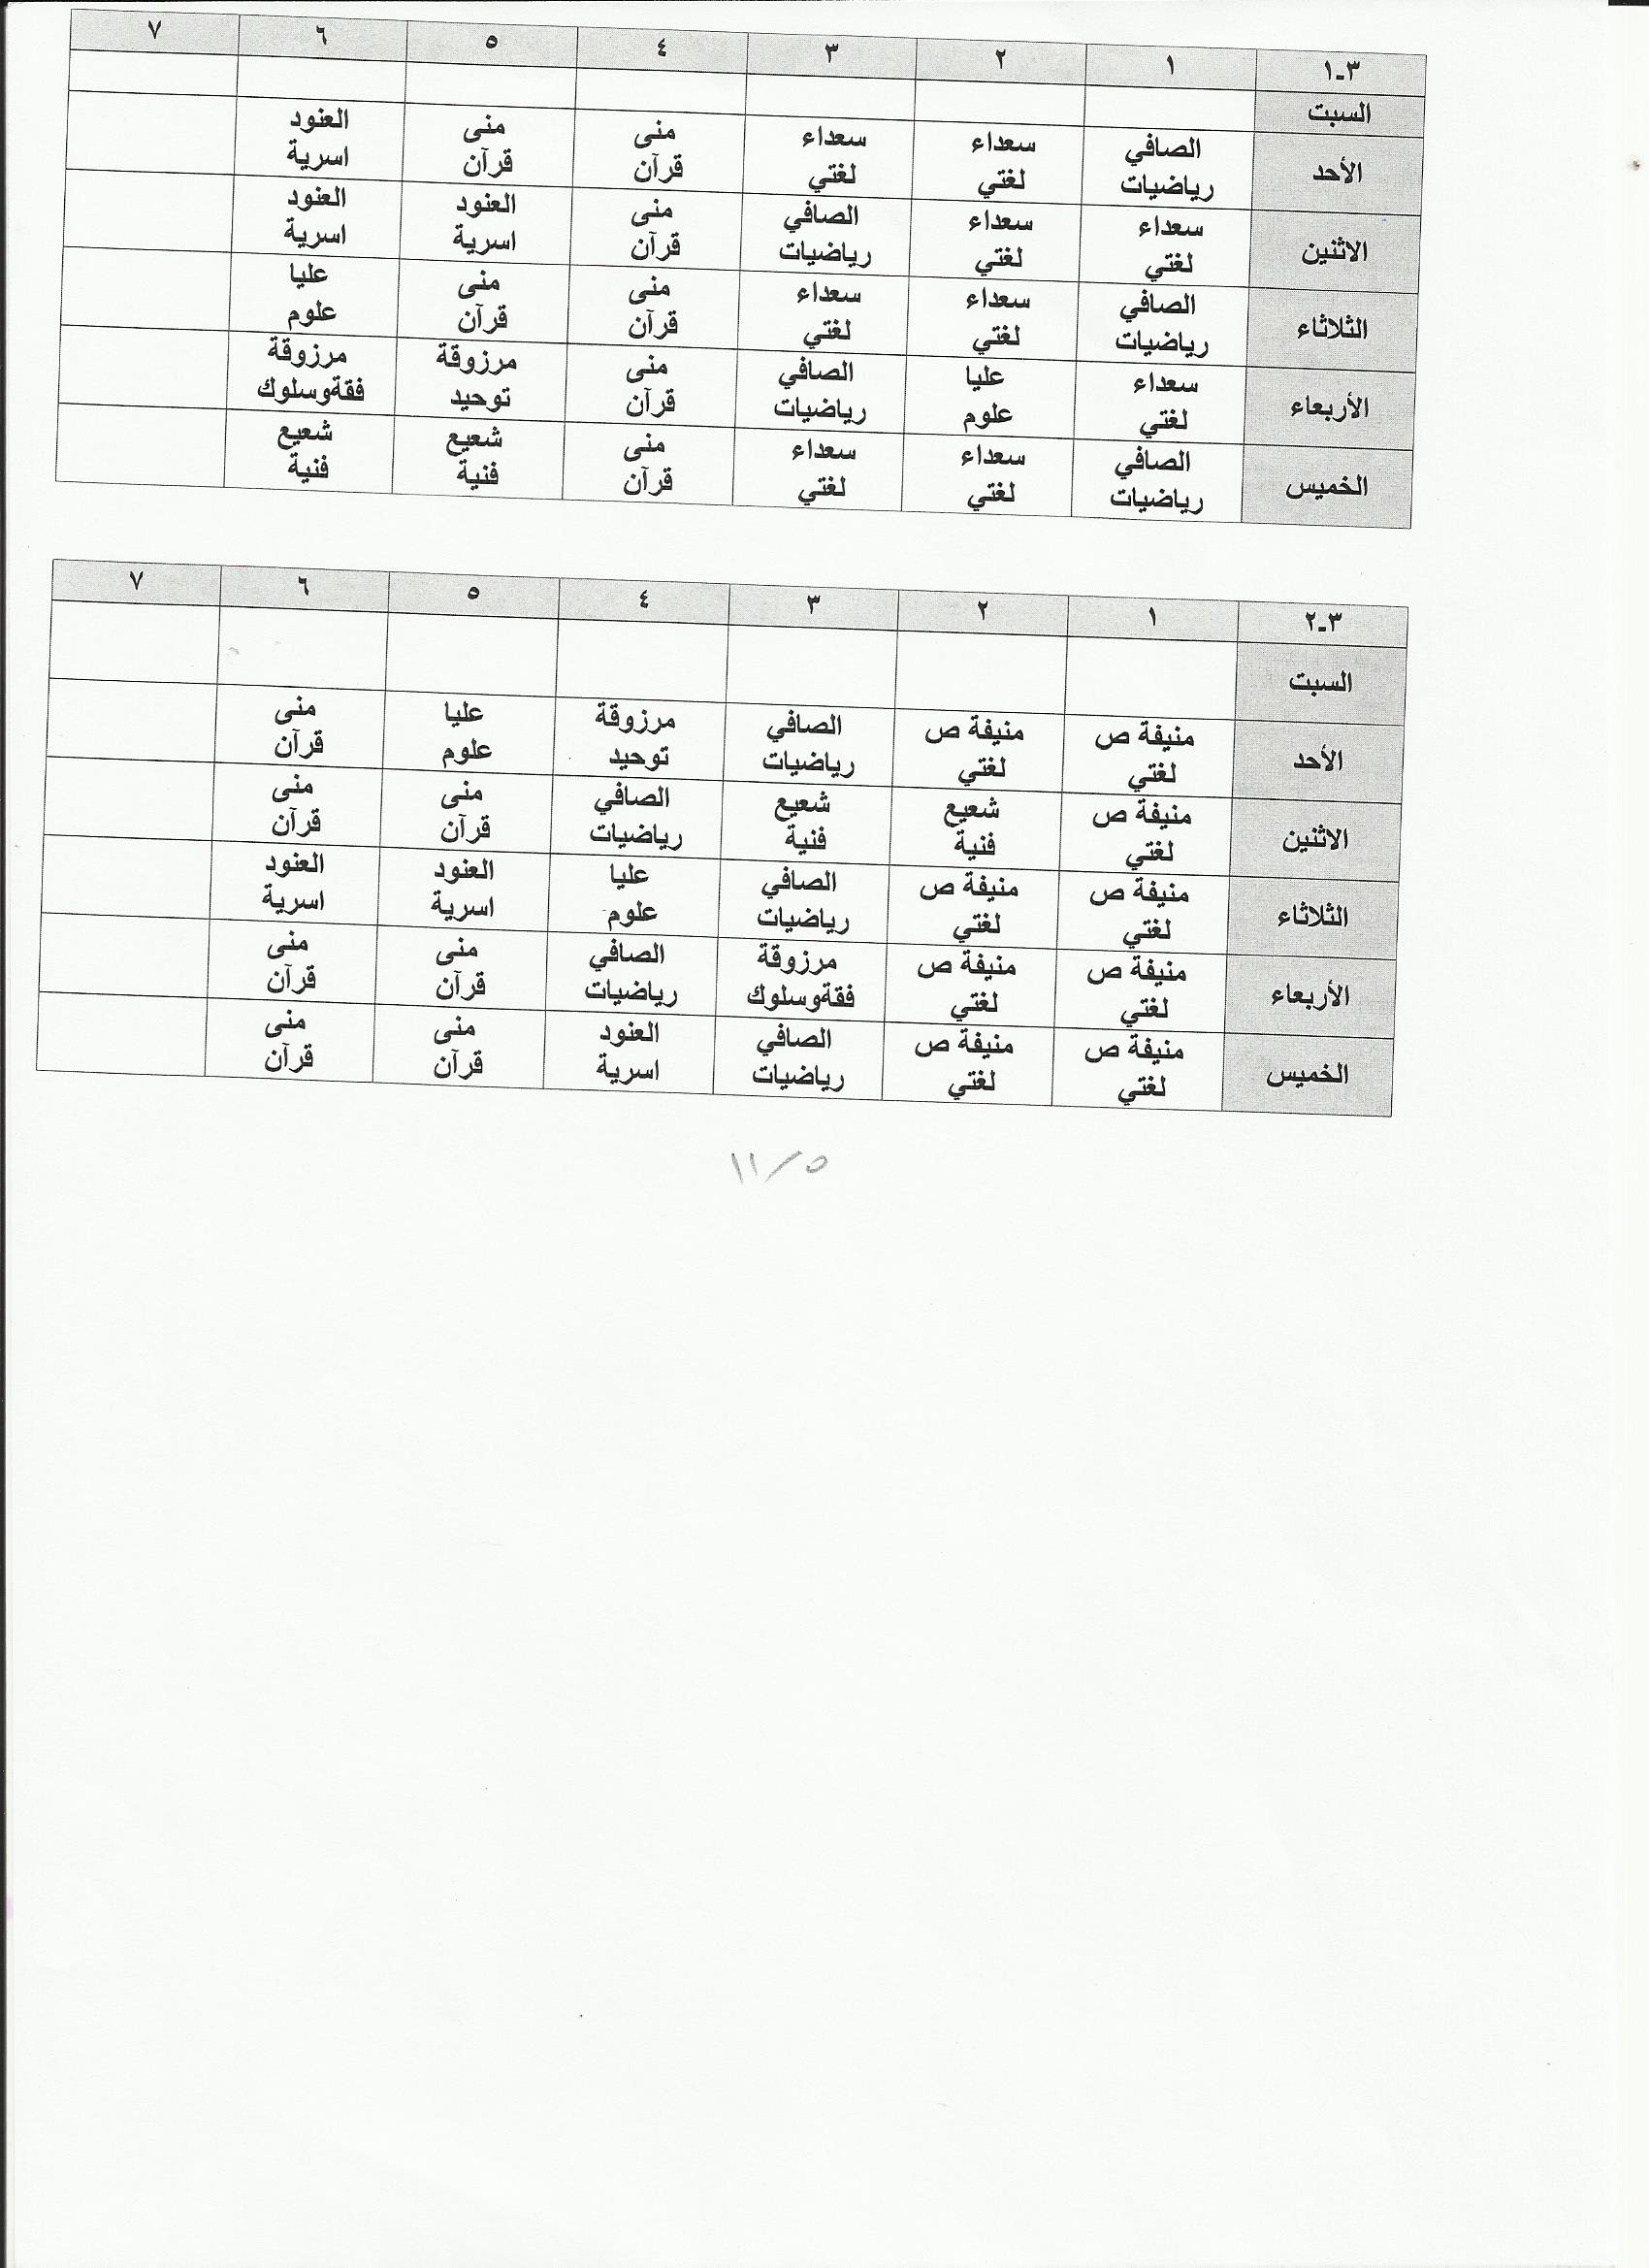 ٣ـ١ ١ ٢ ٣ ٤ ٥ ٦ ٧
السبت
الأحد الصافي رياضيات سعداء لغتي سعداء لغتي منى قرآن منى قرآن العنود اسرية
الاثنين سعداء لغتي سعداء لغتي الصافي رياضيات منى قرآن العنود اسرية العنود اسرية
الثلاثاء الصافي رياضيات سعداء لغتي سعداء لغتي منى قرآن منى قرآن عليا علوم
الأربعاء سعداء لغتي عليا علوم الصافي رياضيات منى قرآن مرزوقة توحيد مرزوقة فقةوسلوك
الخميس الصافي رياضيات سعداء لغتي سعداء لغتي منى قرآن شعيع فنية شعيع فنية
٣ـ٢ ١ ٢ ٣ ٤ ٥ ٦ ٧
السبت
الأحد منيفة ص لغتي منيفة ص لغتي الصافي رياضيات مرزوقة توحيد عليا علوم منى قرآن
الاثنين منيفة ص لغتي شعيع فنية شعيع فنية الصافي رياضيات منى قرآن منى قرآن
الثلاثاء منيفة ص لغتي منيفة ص لغتي الصافي رياضيات عليا علوم العنود اسرية العنود اسرية
الأربعاء منيفة ص لغتي منيفة ص لغتي مرزوقة فقةوسلوك الصافي رياضيات منى قرآن منى قرآن
الخميس منيفة ص لغتي منيفة ص لغتي الصافي رياضيات العنود اسرية منى قرآن منى قرآن
١١/٥